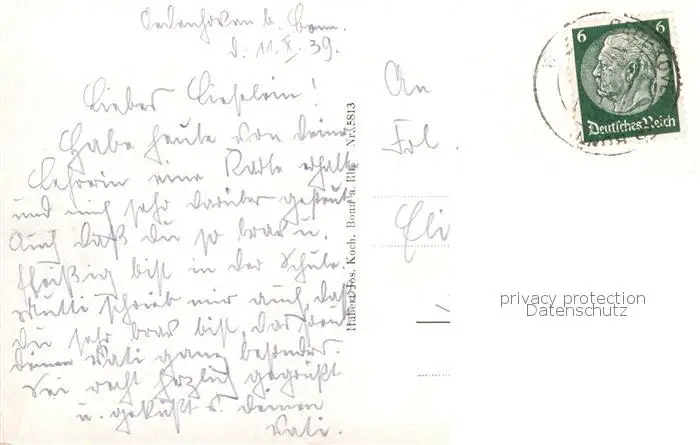 Oedenhoven b. Bonn.
d. 11.X.39.
Liebes Lieslein!
Habe heute von deiner
Lehrerin eine Karte erhalten
und mich sehr darüber gefreut
Auch daß du so brav u.
fleißig bist in der Schule.
Mutti schrieb mir auch, daß
du sehr brav bist, das freut
deinen Vati ganz besonders.
Sei recht herzlich gegrüßt
u. geküßt v. deinem
Vati.
Hubert Jos. Koch. Bonn a. Rh. Nr. 5813
An
Frl.
Eli
6 6
Deutsches Reich
privacy protection
Datenschutz